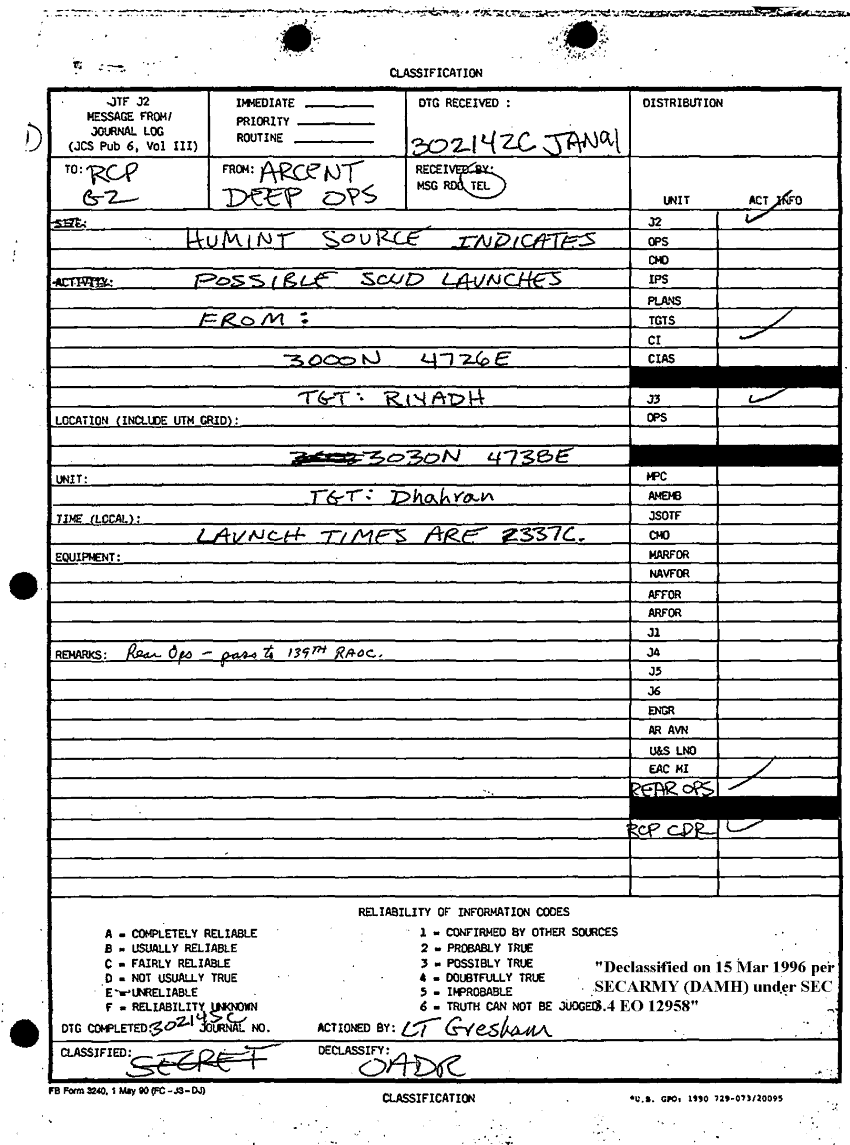 CLASSIFICATION
JTF J2
MESSAGE FROM/
JOURNAL LOG
(JCS Pub 6, Vol III)
IMMEDIATE
PRIORITY
ROUTINE
DTG RECEIVED :
302142C JAN91
DISTRIBUTION
D
TO: RCP
G2
FROM: ARCENT
DEEP OPS
RECEIVED BY:
MSG RDO TEL
UNIT ACT INFO
SIZE:
HUMINT SOURCE INDICATES
ACTIVITY: POSSIBLE SCUD LAUNCHES
FROM :
3000N 4726E
TGT: RIYADH
LOCATION (INCLUDE UTM GRID):
3030N 4738E
UNIT:
TGT: Dhahran
TIME (LOCAL):
LAUNCH TIMES ARE 2337C.
EQUIPMENT:
REMARKS: Rear Ops - pass to 139TH RAOC.
J2
OPS
CMD
IPS
PLANS
TGTS
CI
CIAS
J3
OPS
MPC
AMEMB
JSOTF
CMO
MARFOR
NAVFOR
AFFOR
ARFOR
J1
J4
J5
J6
ENGR
AR AVN
U&S LNO
EAC MI
REAR OPS
RCP CDR
RELIABILITY OF INFORMATION CODES
A = COMPLETELY RELIABLE
B = USUALLY RELIABLE
C = FAIRLY RELIABLE
D = NOT USUALLY TRUE
E = UNRELIABLE
F = RELIABILITY UNKNOWN
1 = CONFIRMED BY OTHER SOURCES
2 = PROBABLY TRUE
3 = POSSIBLY TRUE
4 = DOUBTFULLY TRUE
5 = IMPROBABLE
6 = TRUTH CAN NOT BE JUDGED
"Declassified on 15 Mar 1996 per
SECARMY (DAMH) under SEC
3.4 EO 12958"
DTG COMPLETED: 302145C JOURNAL NO. ACTIONED BY: LT Gresham
CLASSIFIED: SECRET DECLASSIFY: OADR
FB Form 3240, 1 May 90 (FC-J3-DJ)
CLASSIFICATION
*U.S. GPO: 1990 729-073/20095